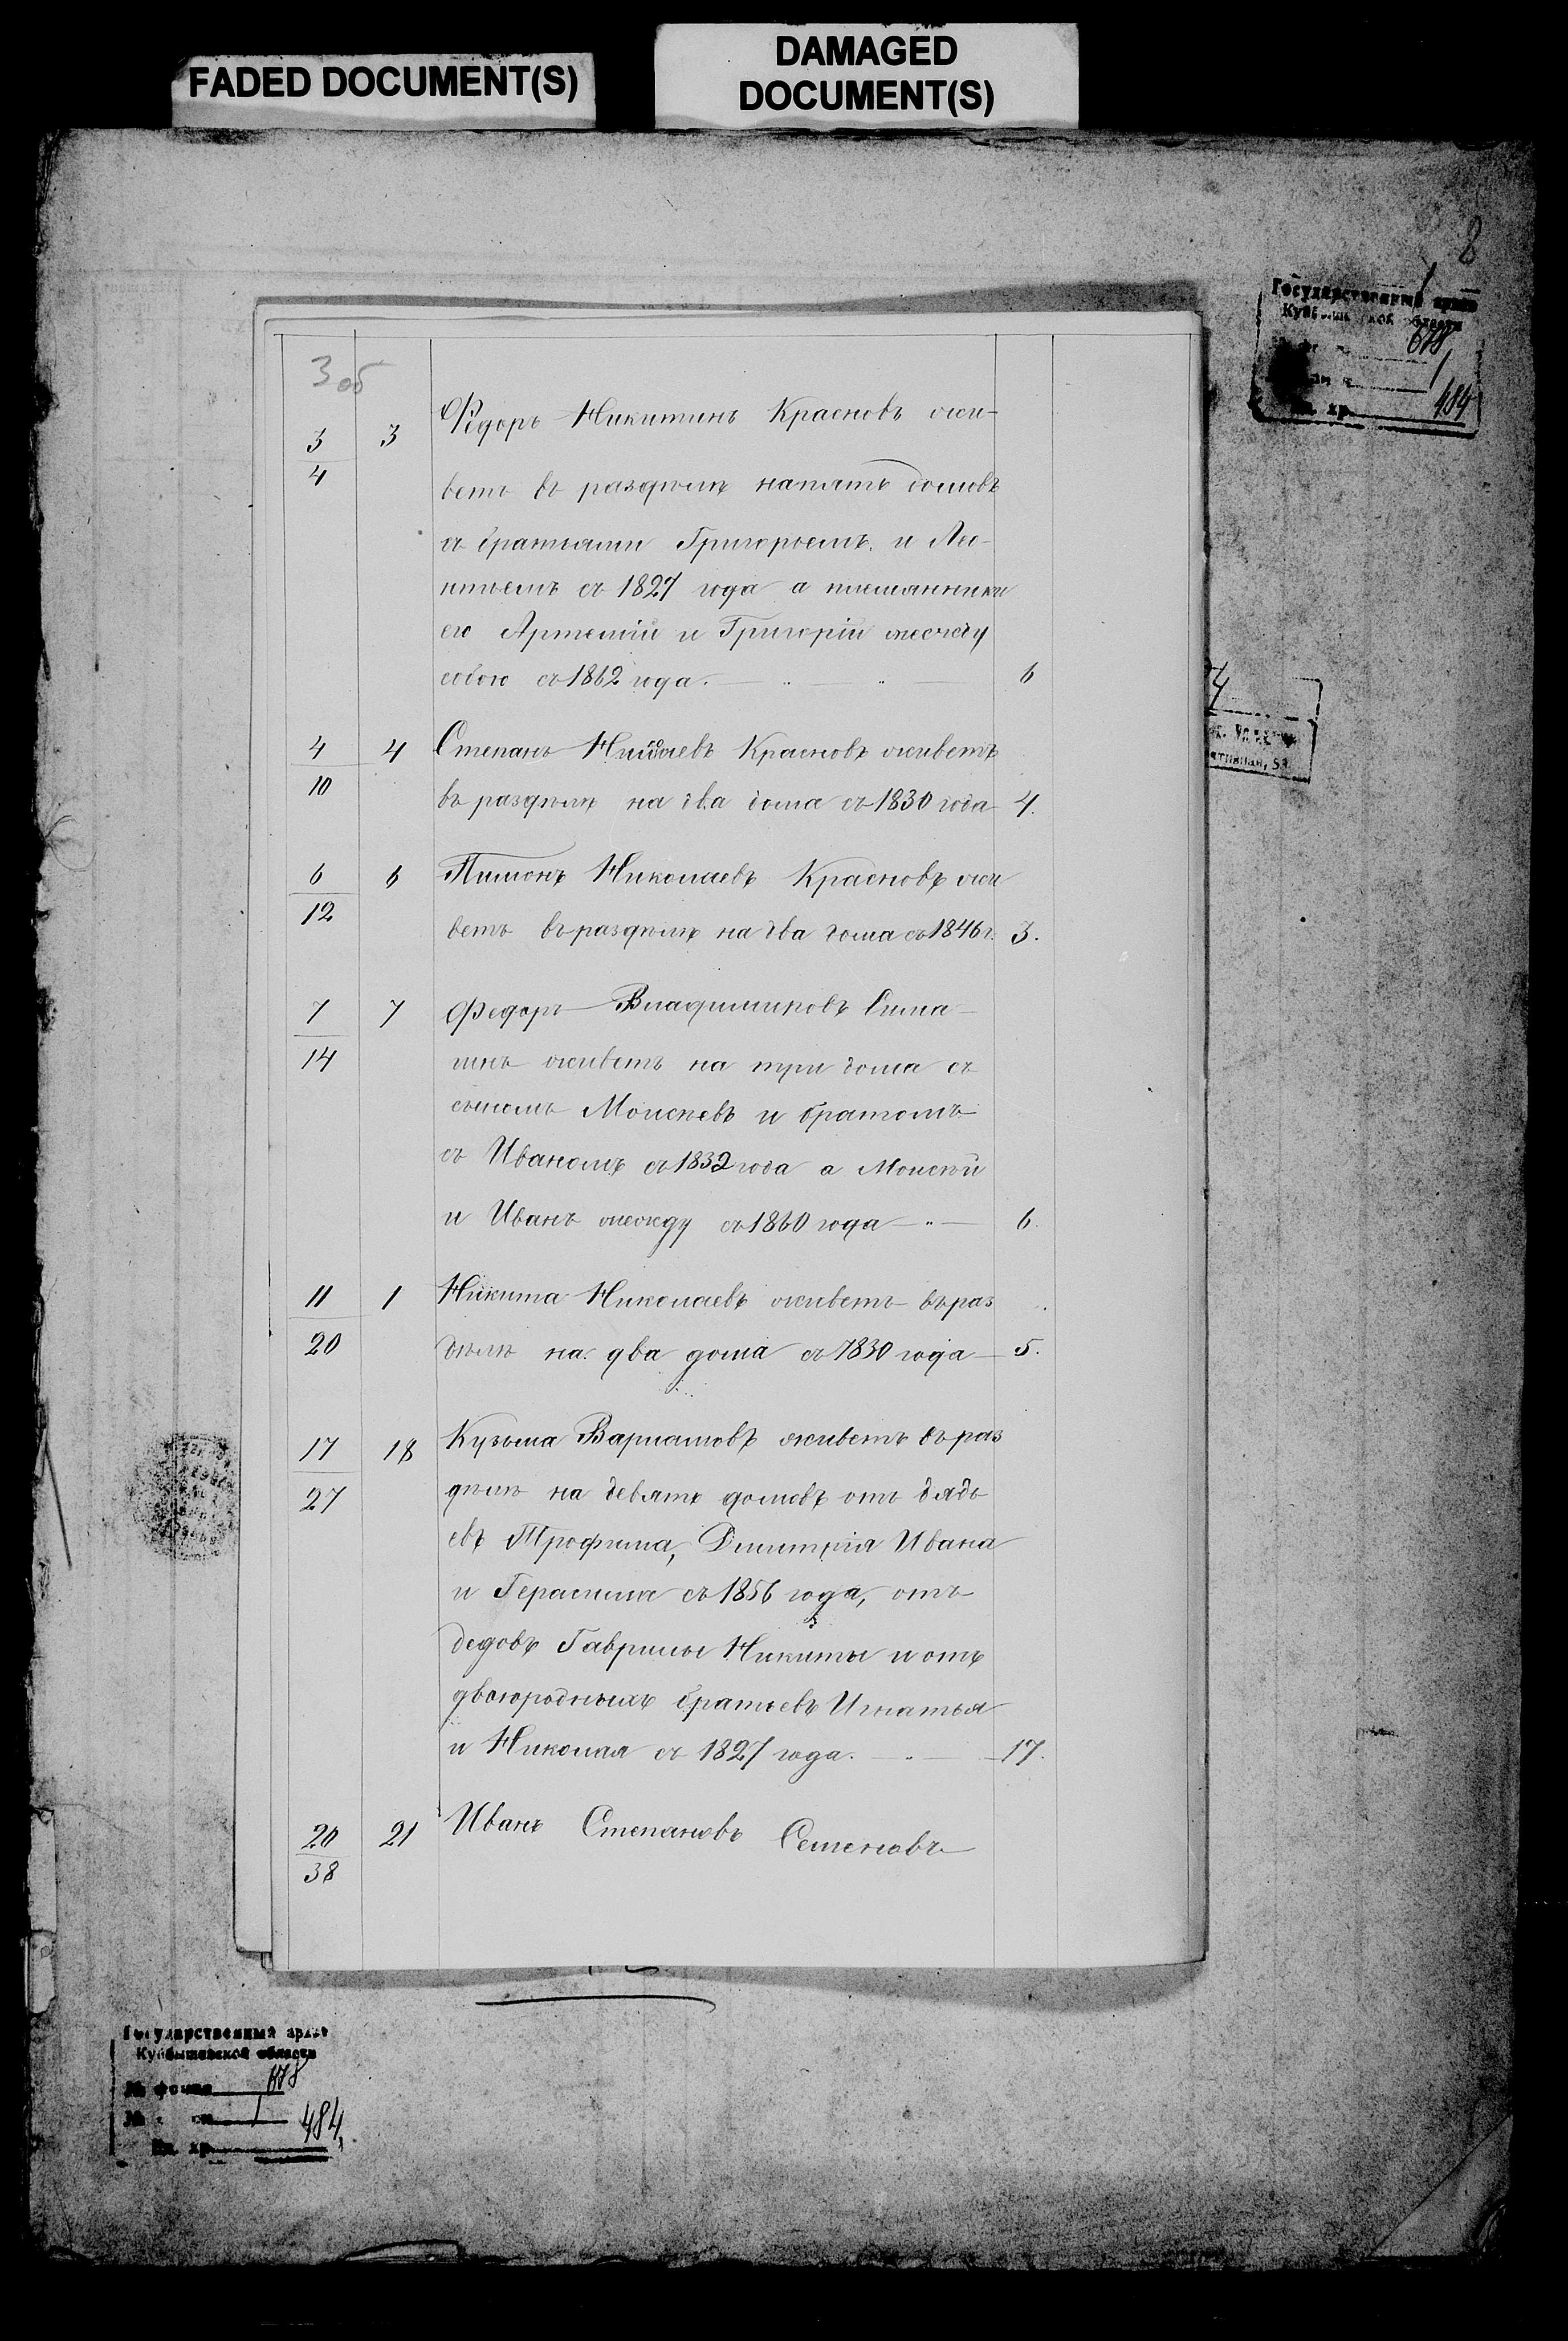 FADED DOCUMENT(S)
DAMAGED
DOCUMENT(S)
8
Государственный архив
Куйбышевской области
678
1
Ед. хр. 484
3 об
3/4 3 Ѳедоръ Никитинъ Красновъ жи-
ветъ въ раздѣлѣ на пять домовъ
съ братьями Григорьемъ и Лео-
нтьемъ съ 1827 года а племянники
его Артемій и Григорій между
собою съ 1862 года. 6
4/10 4 Степанъ Николаевъ Красновъ живетъ
въ раздѣлѣ на два дома съ 1830 года 4.
6/12 6 Пимонъ Николаевъ Красновъ жи
ветъ въ раздѣлѣ на два дома съ 1846 г. 3.
7/14 7 Федоръ Владимировъ Сима-
шнъ живетъ на три дома съ
сыномъ Моисеевъ и братомъ
съ Иваномъ съ 1832 года а Моисей
и Иванъ между съ 1860 года 6.
11/20 1 Никита Николаевъ живетъ въ раз
дѣлѣ на два дома съ 1830 года 5.
17/27 18 Кузьма Варламовъ живетъ въ раз
дѣлѣ на девять домовъ отъ дядь
евъ Трофима, Дмитрія Ивана
и Герасима съ 1856 года, отъ
дедовъ Гаврилы Никиты и отъ
двоюродныхъ братьевъ Игнатья
и Николая съ 1827 года. 17.
20/38 21 Иванъ Степановъ Семеновъ
Государственный архив
Куйбышевской области
№ фонда 678
№ оп. 1
Ед. хр. 484